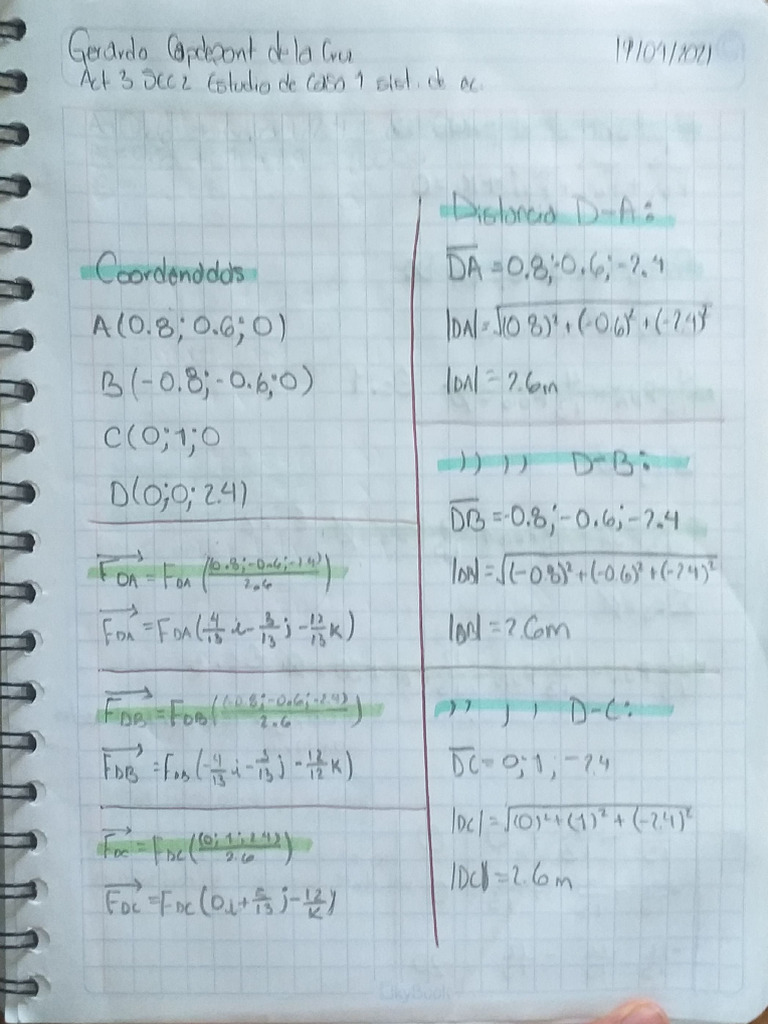 Gerardo Capdepont de la Cruz
19/09/2021
Act 3 SCC2 Estudio de Caso 1 sist. de ec.
Coordenadas
A(0.8; 0.6; 0)
B(-0.8; -0.6; 0)
C(0; 1; 0
D(0; 0; 2.4)
F⃗DA = FDA ((0.8; -0.6; -2.4)/2.6)
F⃗DA = FDA(4/13 i - 3/13 j - 12/13 K)
F⃗DB = FDB ((-0.8; -0.6; -2.4)/2.6)
F⃗DB = FDB(-4/13 i - 3/13 j - 12/12 K)
F⃗DC = FDC((0; 1; 2.4)/2.6)
F⃗DC = FDC(0i + 5/13 j - 12/K)
Distancia D-A:
DA = 0.8; -0.6; -2.4
|DA| = √(0.8)² + (-0.6)² + (-2.4)²
|DA| = 2.6m
)) )) D-B:
DB = -0.8; -0.6; -2.4
|DB| = √(-0.8)² + (-0.6)² + (-2.4)²
|DB| = 2.6m
)) )) D-C:
DC = 0; 1; -2.4
|DC| = √(0)² + (1)² + (-2.4)²
|DC| = 2.6m